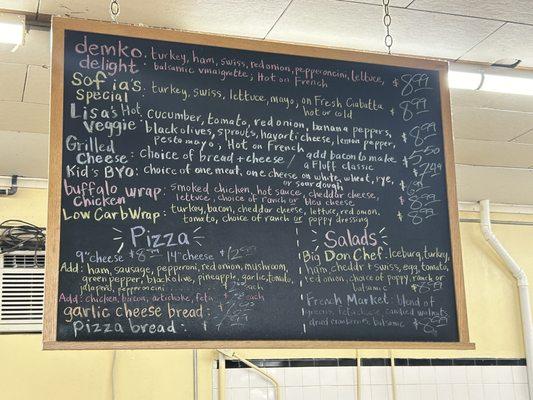 demko delight : turkey, ham, swiss, red onion, pepperoncini, lettuce, $8.99
balsamic vinaigrette, Hot on French
Sofia's Special : turkey, swiss, lettuce, mayo, on Fresh Ciabatta $8.99
hot or cold
Lisa's Hot Veggie : cucumber, tomato, red onion, banana peppers, $8.99
black olives, sprouts, havarti cheese, lemon pepper,
pesto mayo, Hot on French
Grilled Cheese : choice of bread + cheese / add bacon to make
a Fluff classic $7.49
Kid's BYO: choice of one meat, one cheese on white, wheat, rye,
or sour dough
buffalo chicken wrap : smoked chicken, hot sauce, cheddar cheese, $8.99
lettuce, choice of ranch or bleu cheese
Low Carb Wrap : turkey, bacon, cheddar cheese, lettuce, red onion $8.99
tomato, choice of ranch or poppy dressing
Pizza
9" cheese 14" cheese
Add: ham, sausage, pepperoni, red onion, mushroom,
green pepper, black olive, pineapple, garlic, tomato,
jalapeno, pepperoncini each
Add: chicken, bacon, artichoke, feta each
garlic cheese bread :
Pizza bread :
Salads
Big Don Chef. Iceburg, turkey,
ham, cheddr + swiss, egg, tomato,
red onion, choice of poppy, ranch or
balsamic $8.59
French Market: blend of
greens, feta cheese, candied walnuts
dried cranberries, balsamic